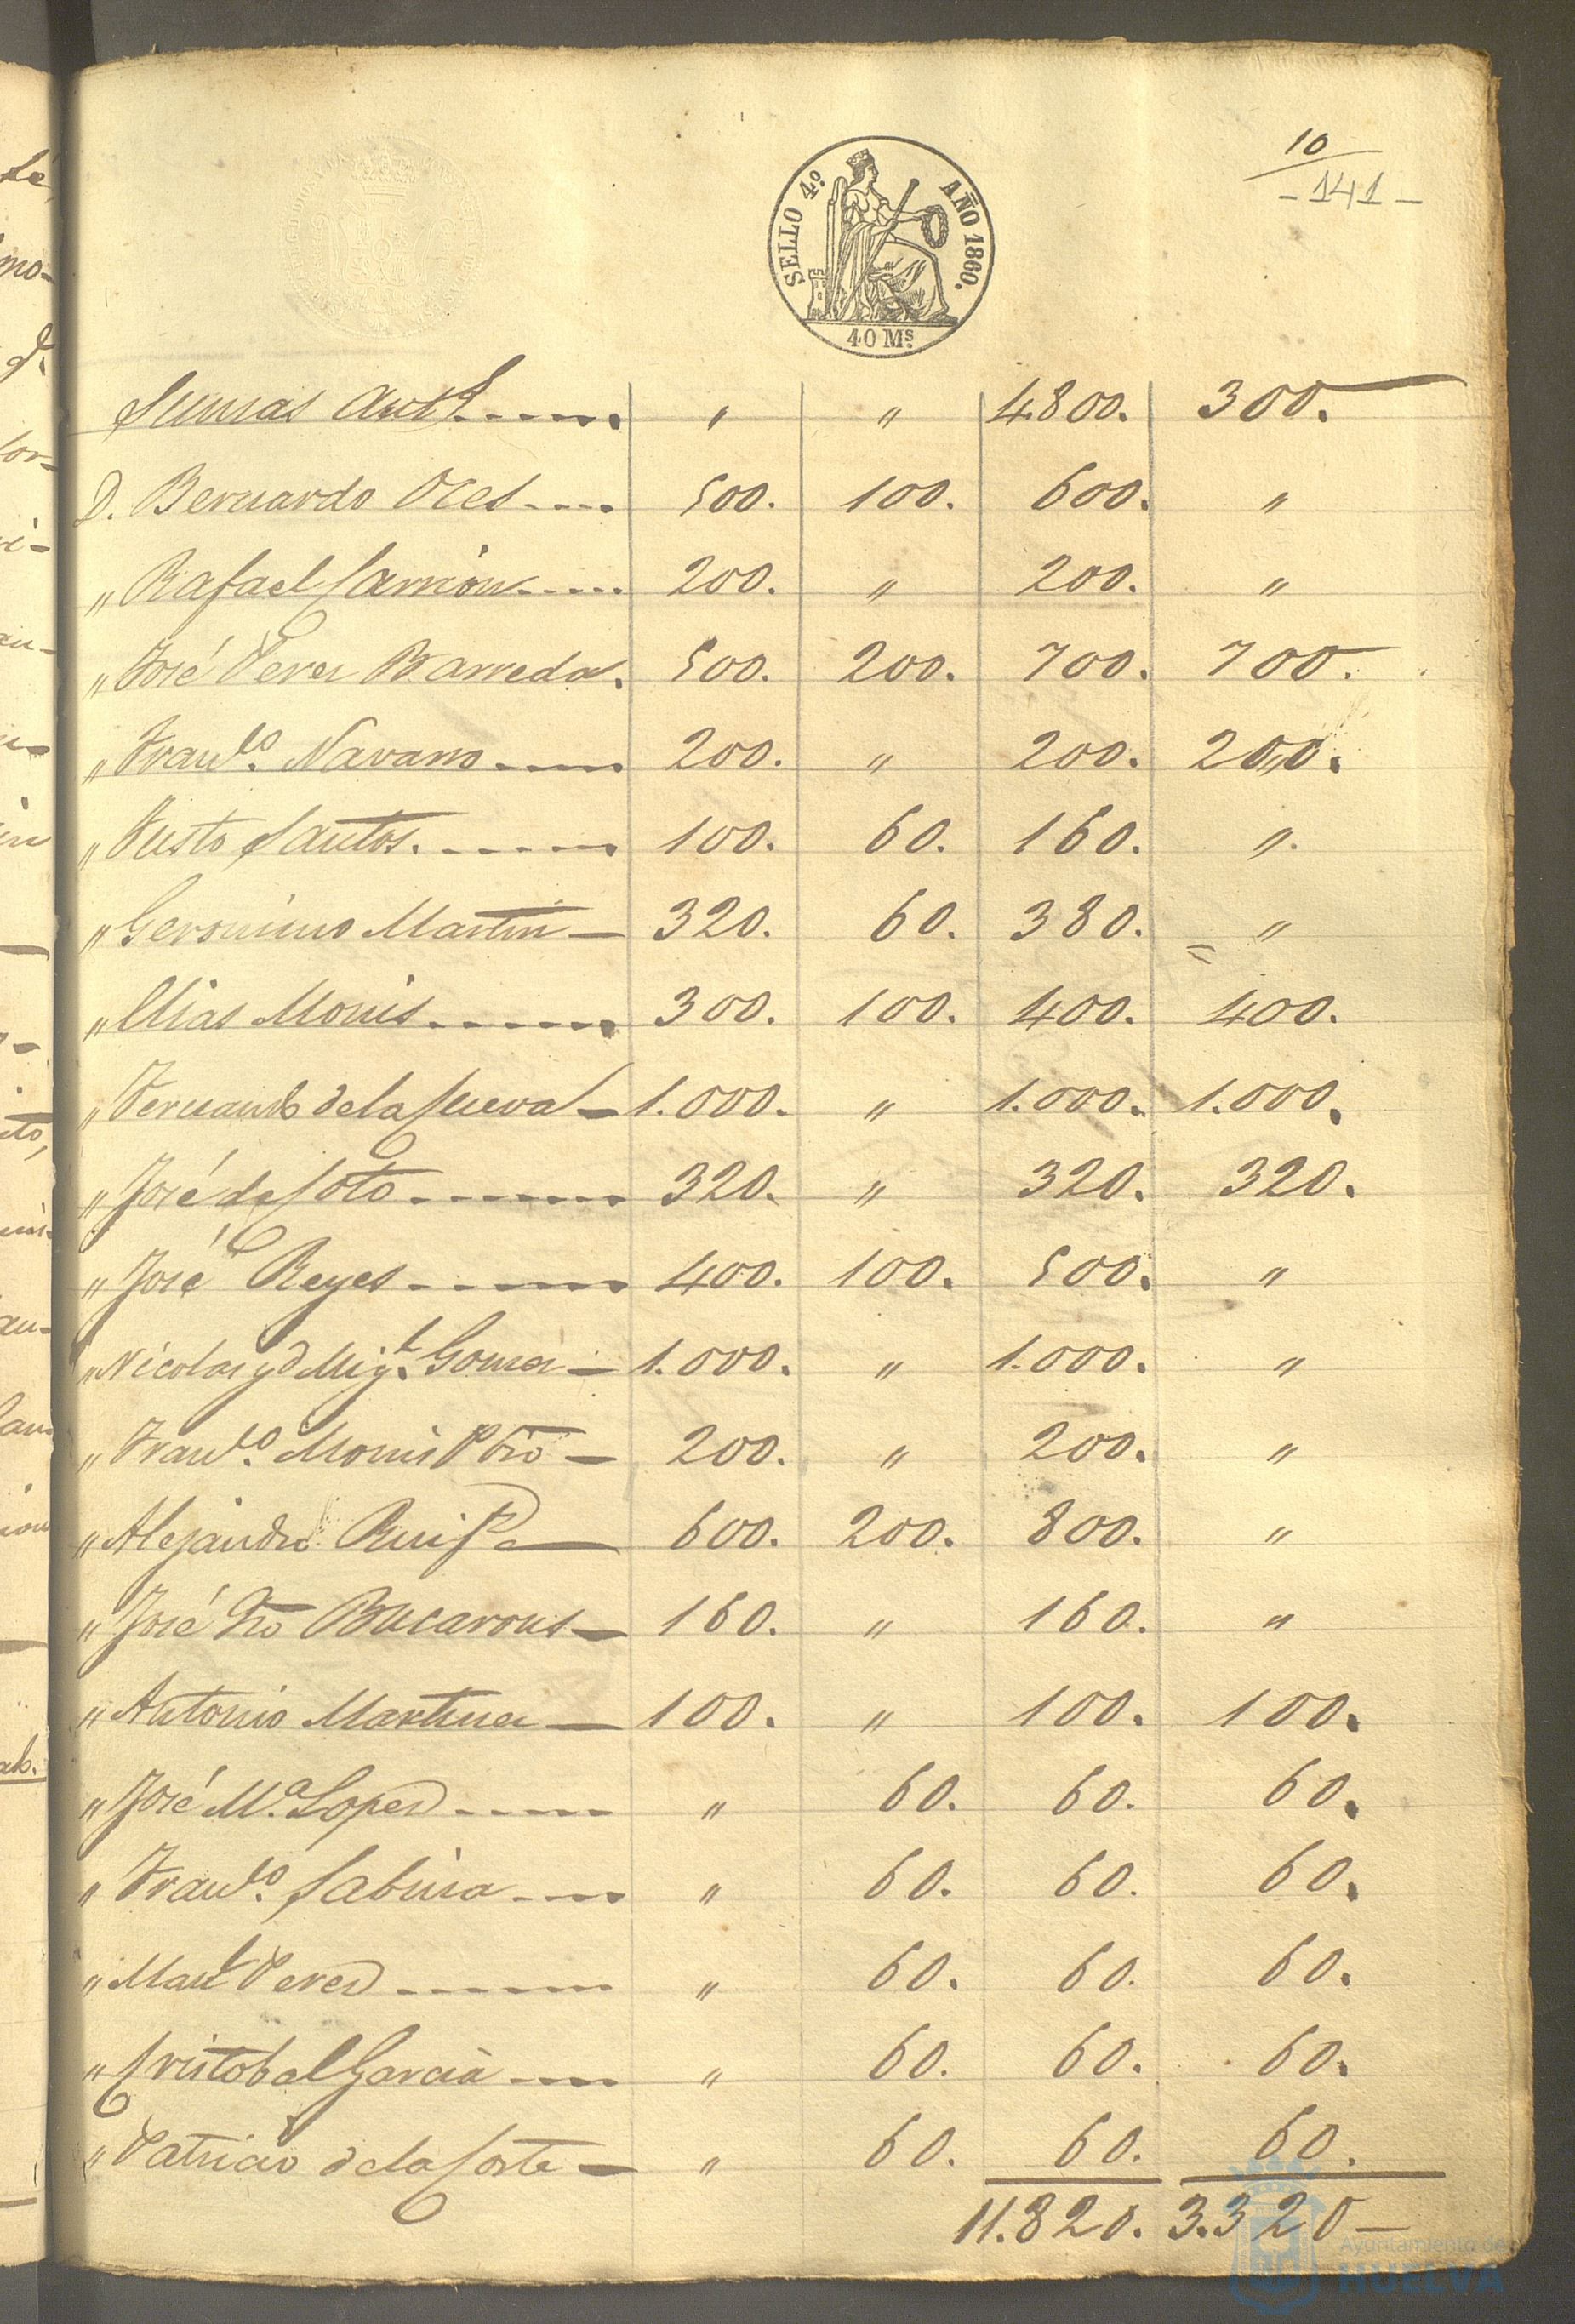 10
- 141 -
SELLO 4º. AÑO 1860.
40 Ms.
Sumas antes " " 4800. 300.
D. Bernardo Oces 500. 100. 600. "
" Rafael Carrión 200. " 200. "
" José Perez Barreda. 500. 200. 700. 700.
" Franco. Navarro 200. " 200. 200.
" Justo Santos. 100. 60. 160. ".
" Geronimo Martin 320. 60. 380. = "
" Elias Monis 300. 100. 400. 400.
" Fernando de la Cueva 1.000. " 1.000. 1.000.
" José de Soto 320. " 320. 320.
" José Reyes 400. 100. 500. "
" Nicolas y D Migl. Gomez 1.000. " 1.000. "
" Franco. Monis Pbro 200. " 200. "
" Alejandro Ruiz 600. 200. 800. "
" José 160. " 160. "
" Antonio Martinez 100. " 100. 100.
" José Ma. Lopez " 60. 60. 60.
" Franco. Sabina " 60. 60. 60.
" Manl Perez " 60. 60. 60.
" Cristobal Garcia " 60. 60. 60.
" Patricio de la Corte " 60. 60. 60.
11.820. 3.320
Ayuntamiento de
HUELVA